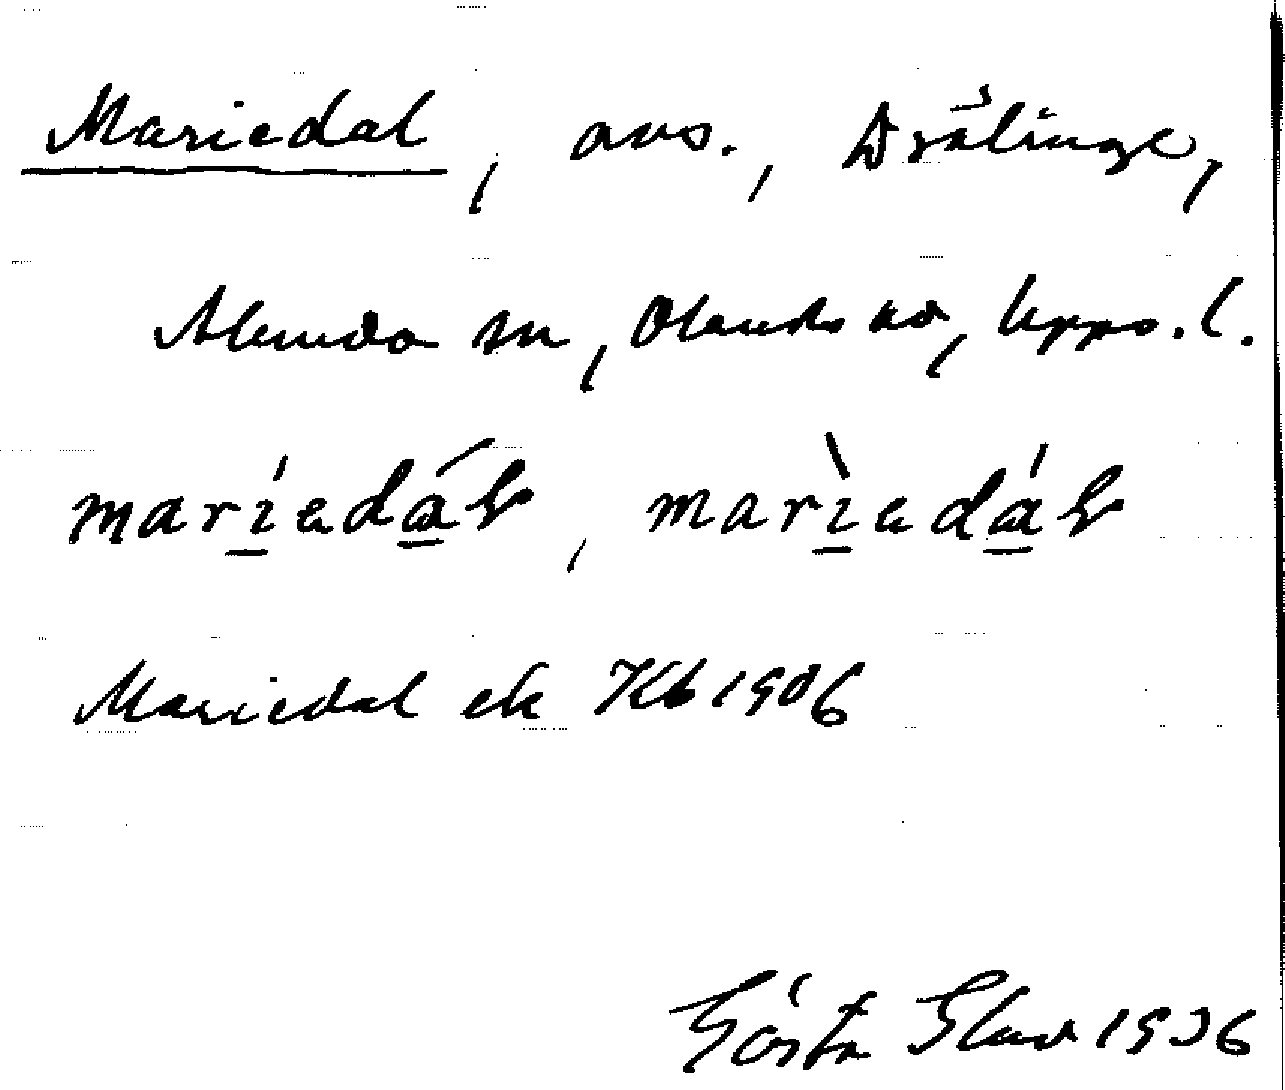 Mariedal, avs., Drälinge,
Alunda sn, Olands hd, Upps. l.
maríedáł, marìedáł
Mariedal ek Kb 1906
Gösta 1936